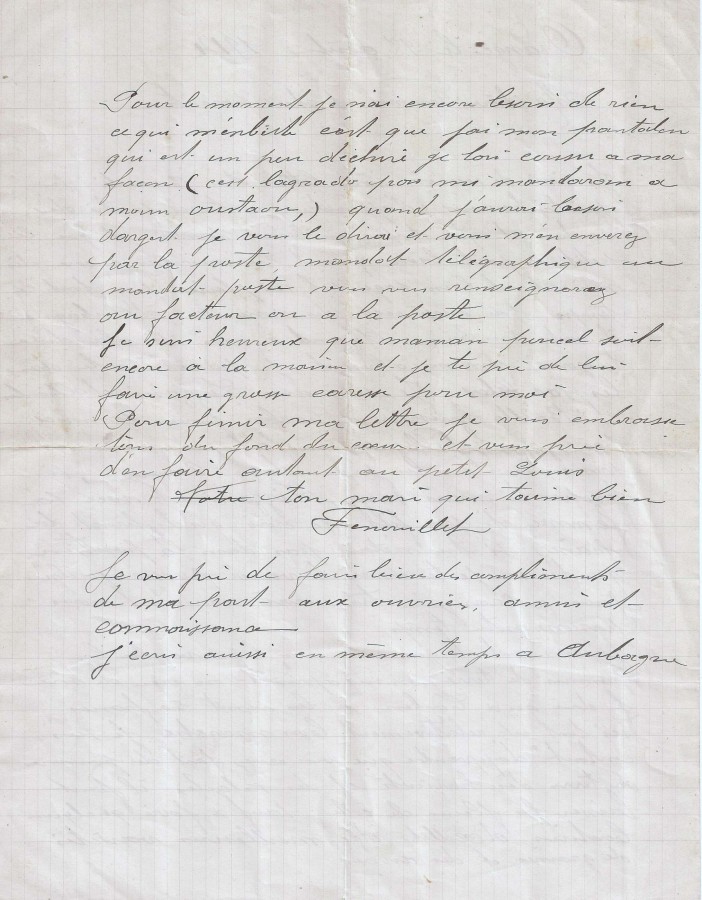 Pour le moment je n'ai encore besoin de rien
ce qui m'enbete c'est que j'ai mon pantalon
qui est un peu déchiré je l'ai cousu a ma
façon (c'est lagrado pour mi mandarem a
moun oustaou,) quand j'aurai besoin
d'argent je vous le dirai et vous m'en enverez
par la poste mandat télégraphique ou
mandat poste vous vous renseignerez
au facteur ou a la poste
Je suis heureux que maman puncel soit
encore à la maison et je te prie de lui
faire une grosse caresse pour moi
Pour finir ma lettre je vous embrasse
tous du fond du cœur et vous prie
d'en faire autant au petit Louis
Votre ton mari qui t'aime bien
Fenouillet
Je vous prie de faire bien des compliments
de ma part aux ouvriers, amis et
connaissance
J'écris aussi en même temps a Aubagne